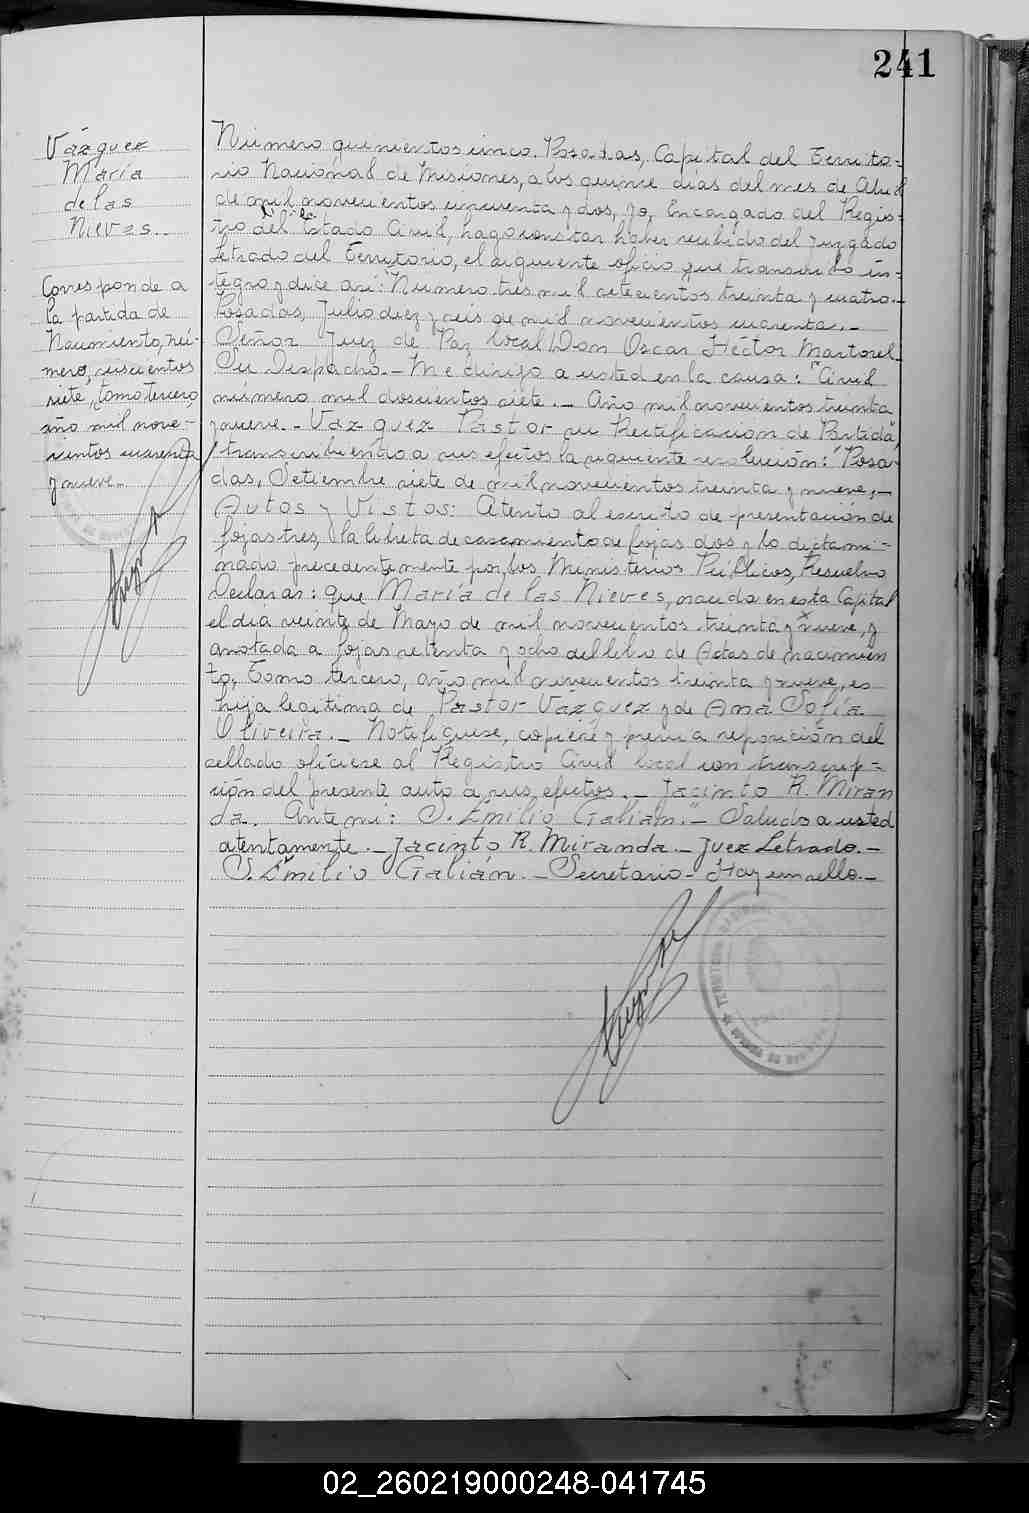 241
Vázquez
María
de las
Nieves.
Corresponde a
la partida de
Nacimiento, nú-
mero, doscientos
siete, tomo tercero,
año mil nove-
cientos cuarenta
y nueve.-
Número quinientos cinco. Posadas, Capital del Territo-
rio Nacional de Misiones, a los quince días del mes de Abril
de mil novecientos cincuenta y dos, yo, Encargado del Regis-
tro del Estado Civil, hago constar haber recibido del Juzgado
Letrado del Territorio, el siguiente oficio que transcribo ín-
tegro y dice así: "Número tres mil setecientos treinta y cuatro.-
Posadas, Julio diez y seis de mil novecientos cuarenta.-
Señor Juez de Paz Local Don Oscar Héctor Martorel.
Su Despacho.- Me dirijo a usted en la causa: "Civil
número mil doscientos siete.- Año mil novecientos treinta
y nueve.- Vázquez Pastor su Rectificación de Partida",
transcribiendo a sus efectos la siguiente resolución: "Posa-
das, Setiembre siete de mil novecientos treinta y nueve.-
Autos y Vistos: Atento al escrito de presentación de
fojas tres, la libreta de casamiento de fojas dos y lo dictami-
nado precedentemente por los Ministerios Públicos, Resuelvo
Declarar: que María de las Nieves, nacida en esta Capital
el día veinte de Mayo de mil novecientos treinta y nueve, y
anotada a fojas setenta y ocho del libro de Actas de nacimien
to, Tomo tercero, año mil novecientos treinta y nueve, es
hija legítima de Pastor Vázquez y de Ana Sofía
Oliveira.- Notifíquese, cópiese y previa reposición del
sellado ofíciese al Registro Civil local con transcrip-
ción del presente auto a sus efectos.- Jacinto R. Miran
da. Ante mi: S. Emilio Galián."- Saludo a usted
atentamente.- Jacinto R. Miranda.- Juez Letrado.-
S. Emilio Galián.- Secretario- Hay un sello.-
02_260219000248-041745